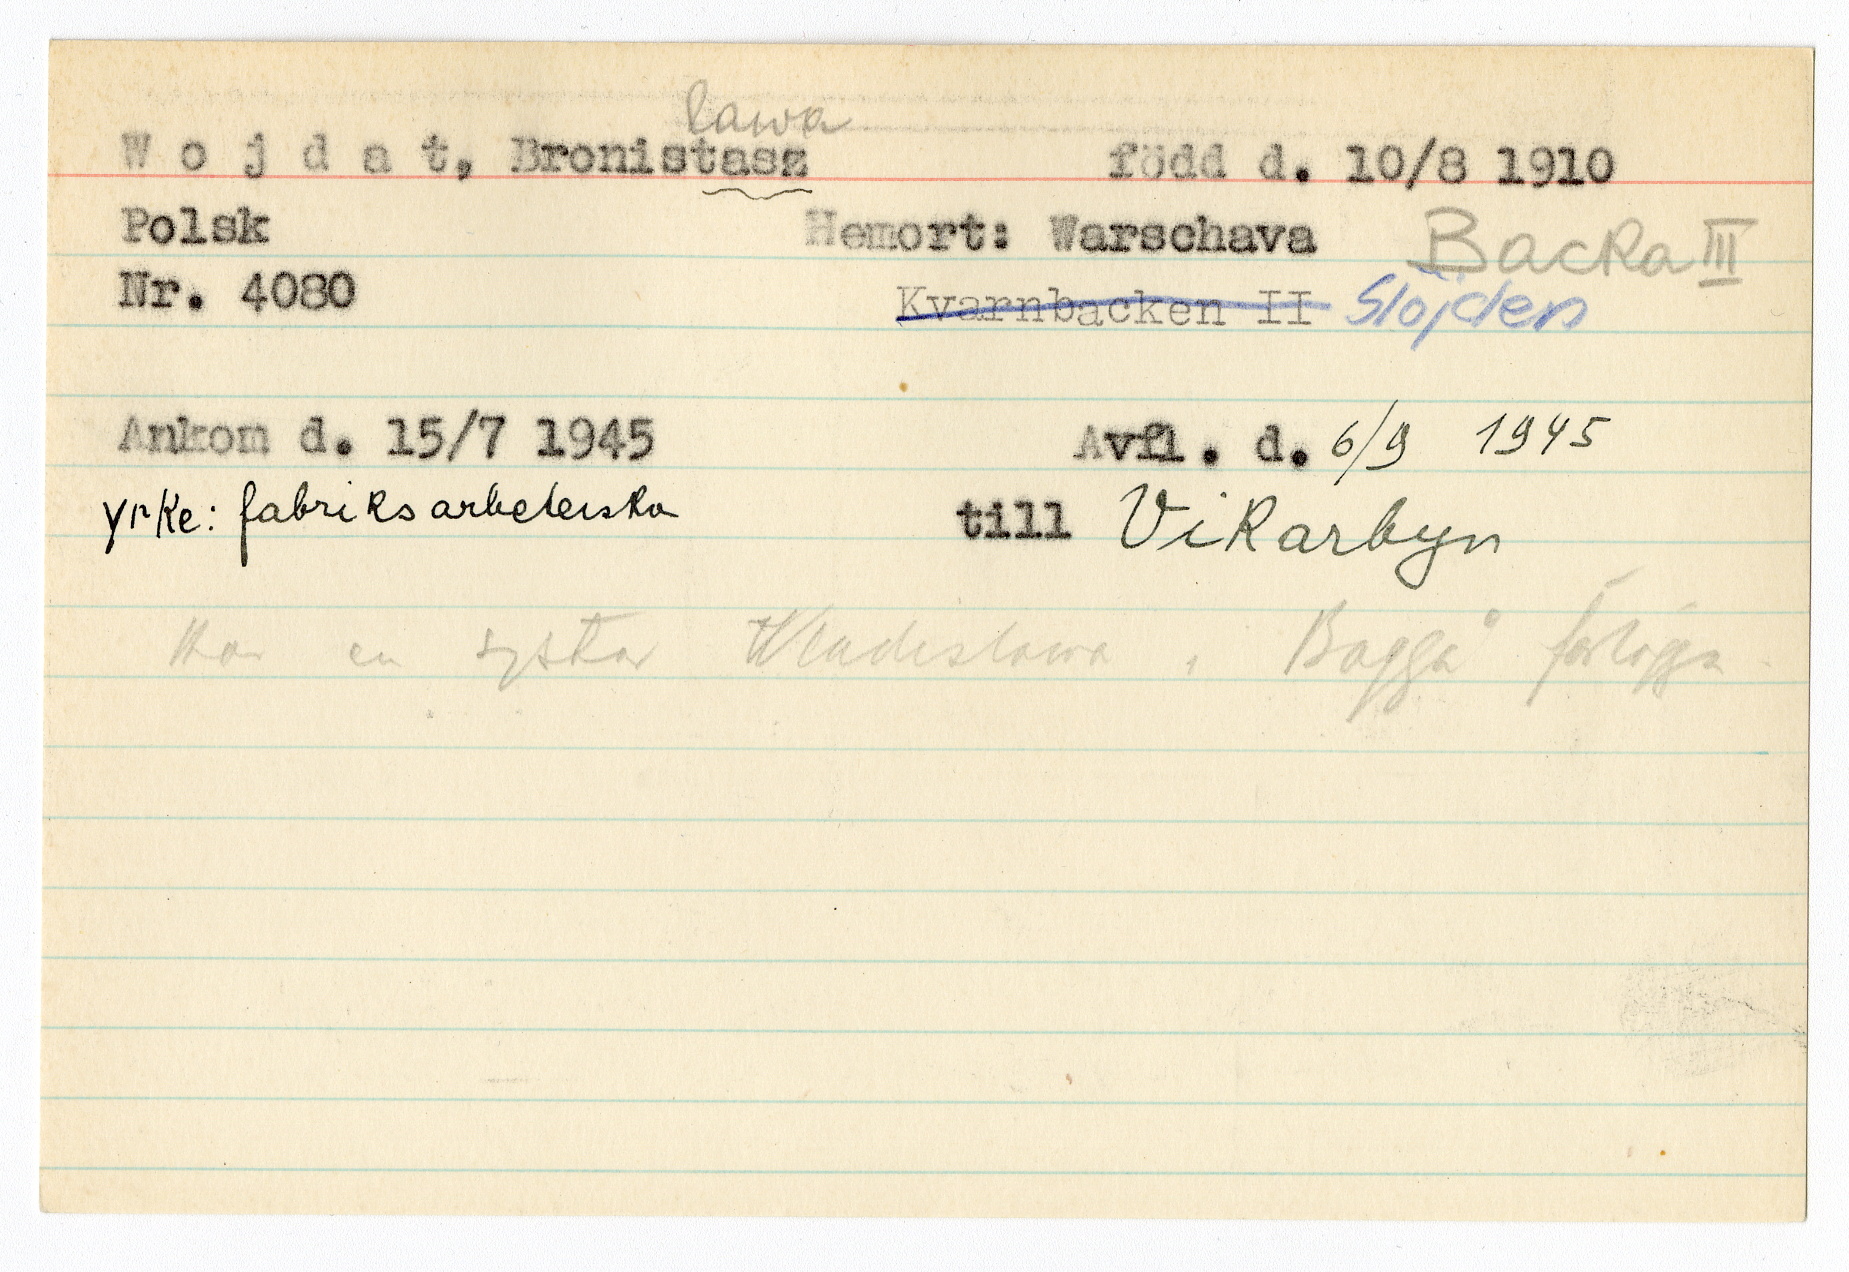 lawa
W o j d a t, Bronistasz född d. 10/8 1910
Polsk Hemort: Warschava Backa III
Nr. 4080 Kvarnbacken II Slöjden
Ankom d. 15/7 1945 Avfl. d. 6/9 1945
yrke: fabriksarbeterska till Vikarbyn
Har en syster Wladislawa i Baggå